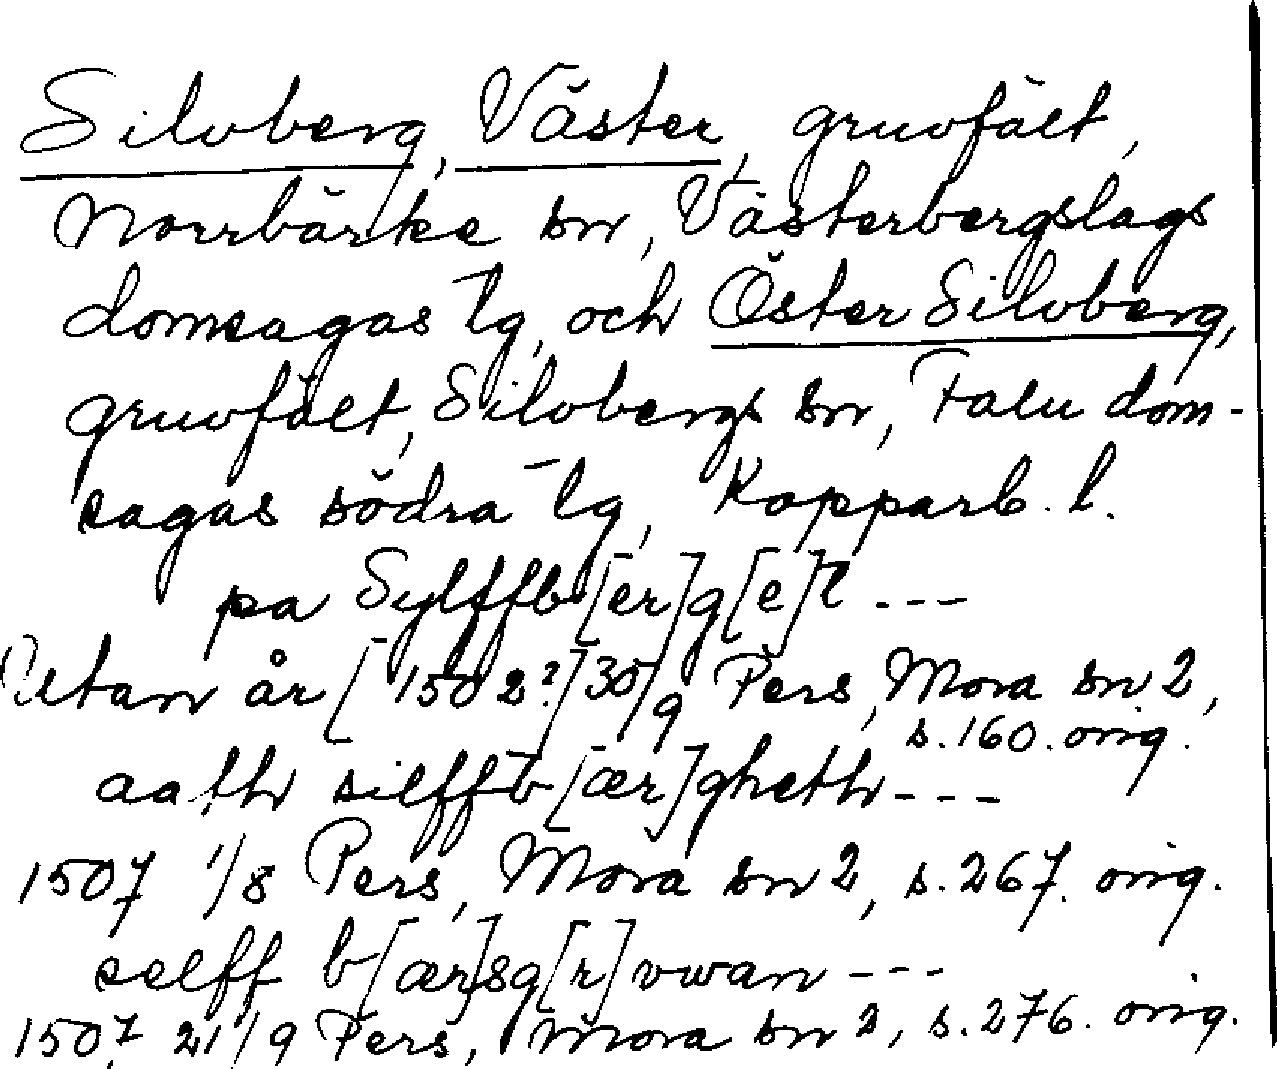 Silvberg, Väster, gruvfält,
Norrbärke sn, Västerbergslags
domsagas tg, och Öster Silvberg,
gruvfält, Silvbergs sn, Falu dom-
sagas södra tg, Kopparb. l.
pa Sylffb[er]g[e]t ---
Utan år [1502?] 30/9 Pers, Mora sn 2,
s. 160. orig.
aath silffb[ær]gheth ---
1507 1/8 Pers, Mora sn 2, s. 267. orig.
selff b[ær]sg[r]vwan ---
1507 21/9 Pers, Mora sn 2, s. 276. orig.